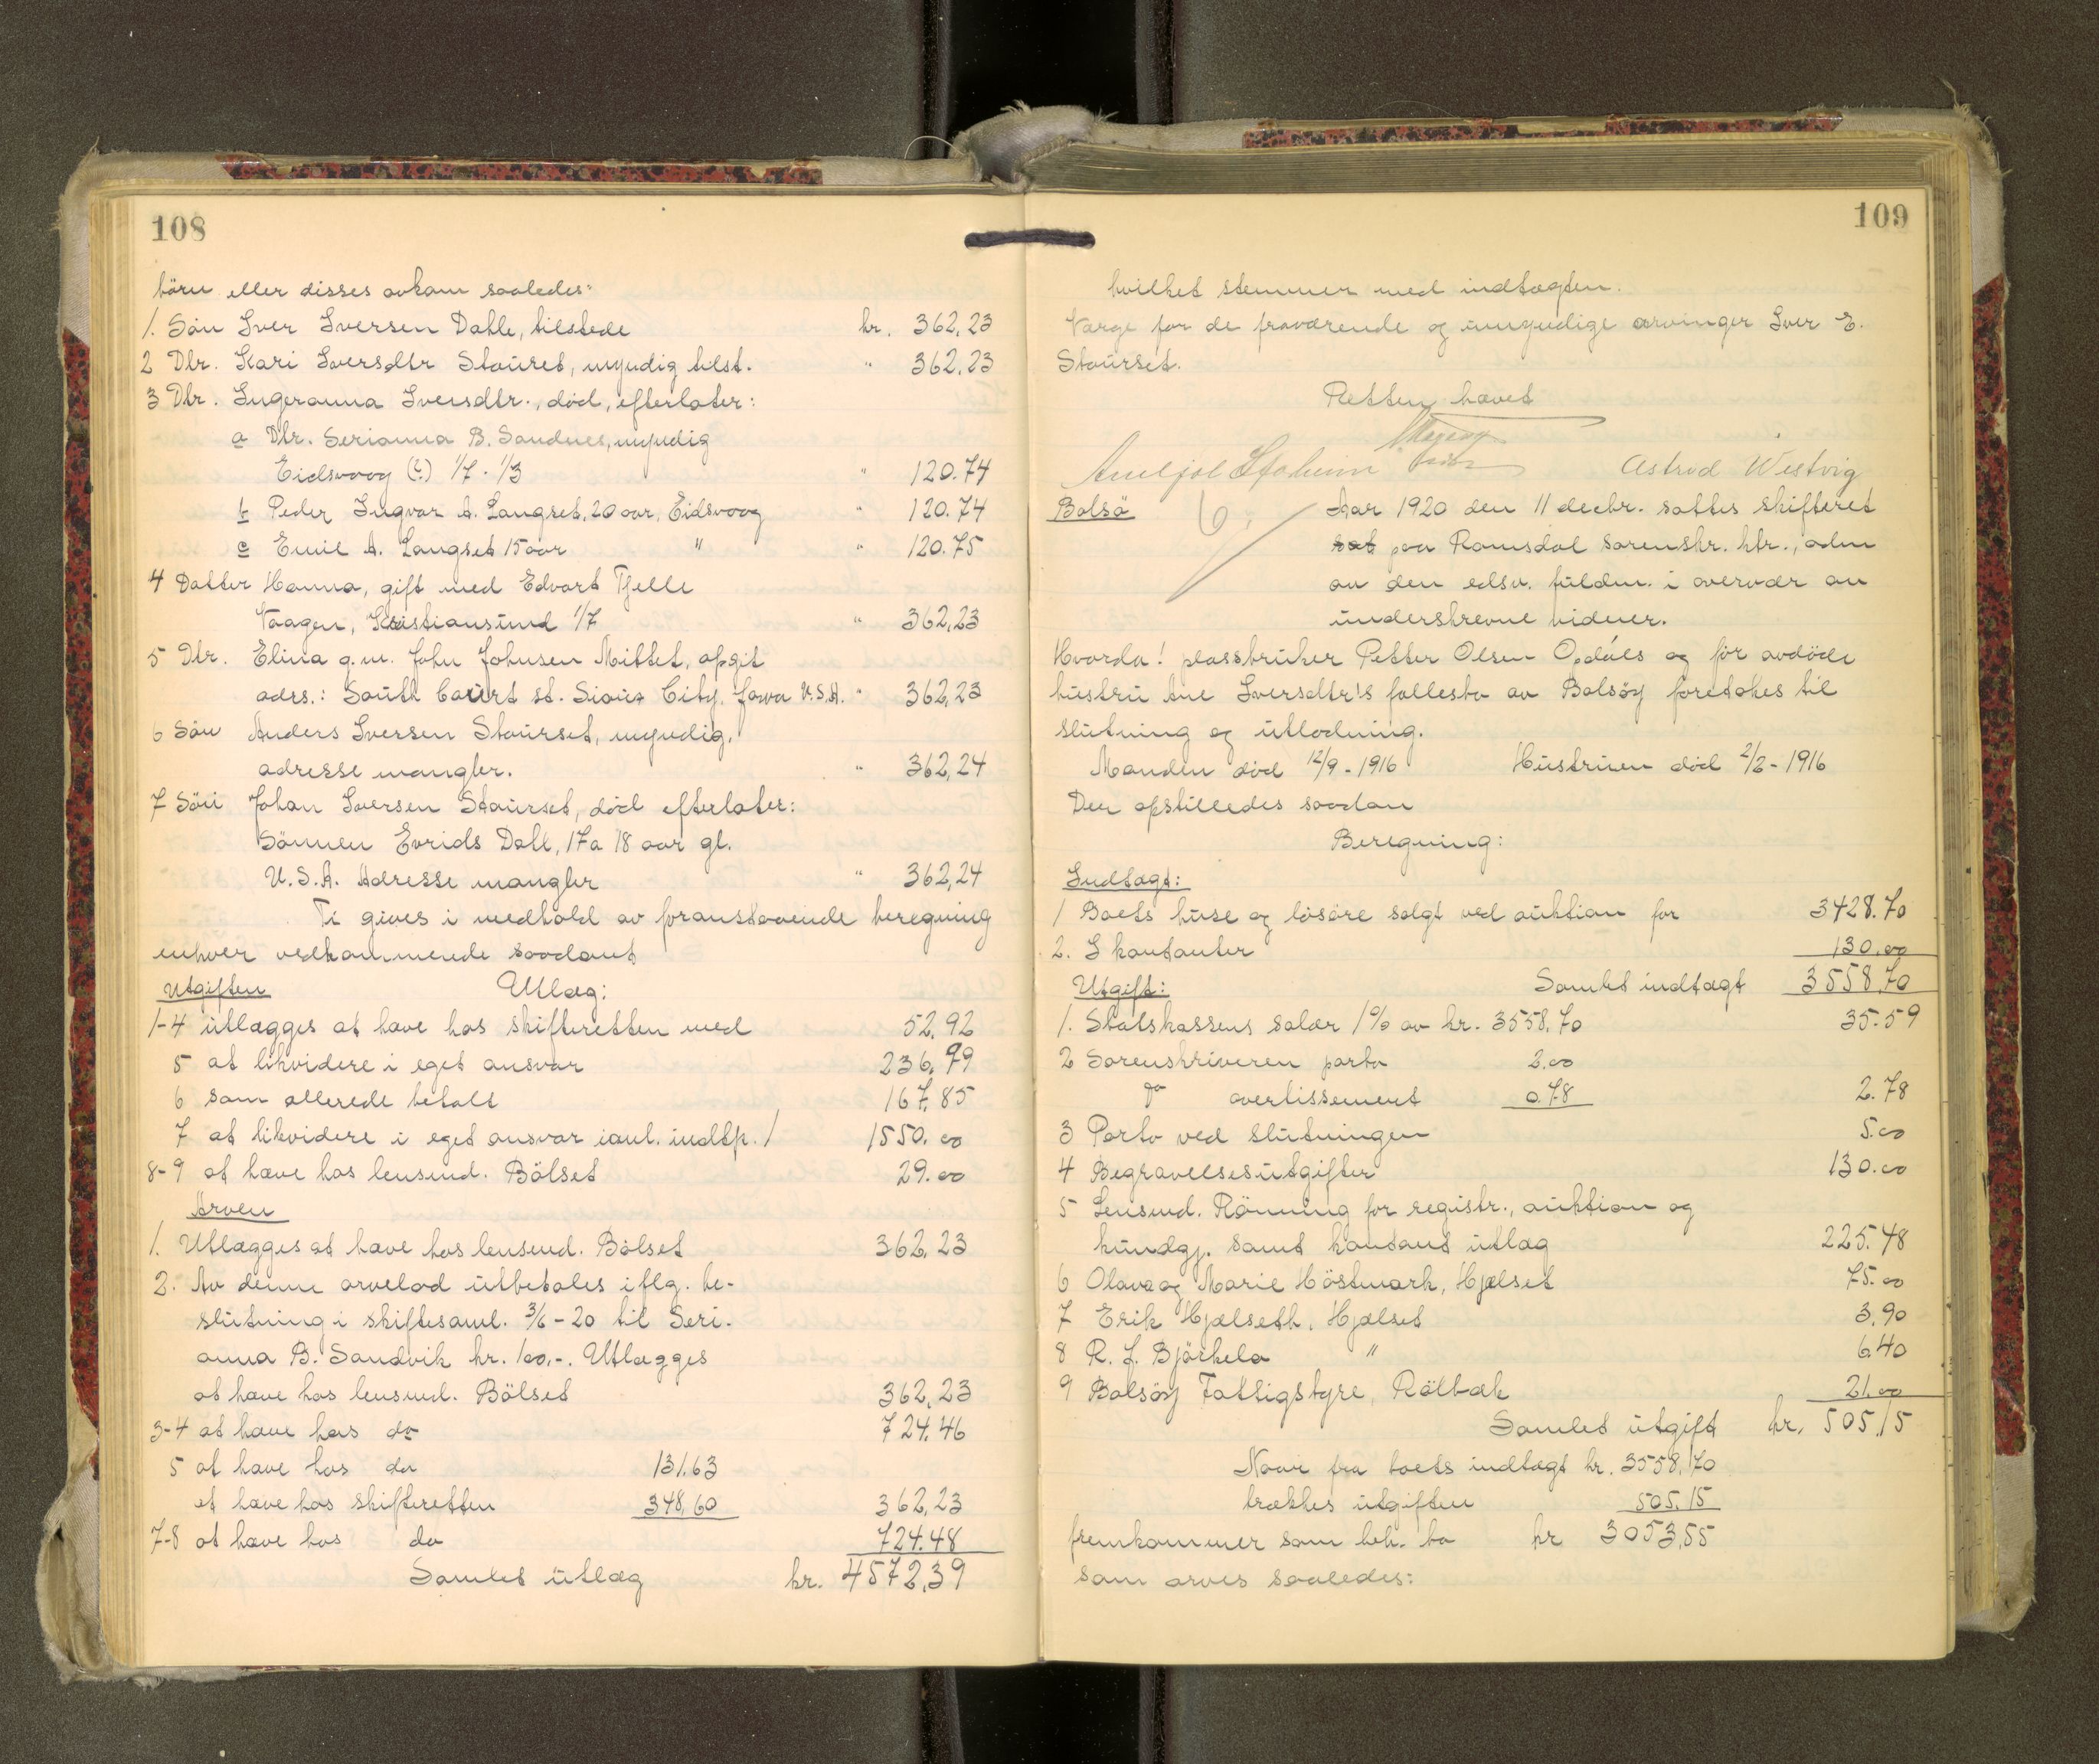 108
börn eller disses avkom saaledes:
1. Sön Iver Iversen Dahle, tilstede kr. 362,23
2 Dtr. Kari Iversdtr Stauret, myndig tilst. " 362,23
3 Dtr. Ingeranna Iversdtr., död, efterlater:
a Dtr. Serianna B. Sandnes, myndig
Eidsvaag (?) 1/7 . 1/3 " 120.74
b Peder Ingvar A. Langset, 20 aar, Eidsvaag " 120.74
c Emil A. Langset 15 aar " " 120.75
4 Datter Hanna, gift med Edvart Tjelle
Vaagen, Kristiansund 1/7 " 362,23
5 Dtr. Elina g.m. John Johnsen Mittet, opgit
adrs.: South Court st. Sioux City. Jowa U.S.A. " 362,23
6 Sön Anders Iversen Staurset, myndig,
adresse mangler. " 362,24
7 Sön Johan Iversen Staurset, död efterlater:
Sönnen Evrids Dall, 17 a 18 aar gl.
U.S.A. Adresse mangler " 362,24
Ti gives i medhold av foranstaaende beregning
enhver vedkommende saadant
Utgiften Utlæg:
1-4 utlægges at have hos skifteretten med 52,92
5 at likvidere i eget ansvar 236,99
6 som allerede betalt 167,85
7 at likvidere i eget ansvar ianl. indtp. 1 1550.00
8-9 at have hos lensmd. Bölset 29.00
Arven
1. Utlægges at have hos lensmd. Bölset 362,23
2. Av denne arvelod utbetales iflg. be-
slutning i skiftesaml. 3/6-20 til Seri-
anna B. Sandvik kr. 100,-. Utlægges
at have hos lensmd. Bölset 362,23
3-4 at have hos do 724.46
5 at have hos do 131.63
at have hos skifteretten 348,60 362,23
7-8 at have hos do 724.48
Samlet utlæg kr. 4572,39
109
hvilket stemmer med indtægten.
Værge for de fraværende og umyndige arvinger Iver E.
Staurset.
Retten hævet
Astrud Westvig
Bolsö 6. Aar 1920 den 11 decbr. sattes skifteret
sat paa Romsdal sorenskr. ktr., adm
av den edsv. fuldm. i overvær av
underskrevne vidner.
Hvorda! plassbruker Petter Olsen Opdöls og för avdöde
hustru Ane Iversdtr's fællesbo av Bolsöy foretokes til
slutning og utlodning.
Manden död 12/9-1916 Hustruen död 2/2-1916
Der opstilledes saadan
Beregning:
Indtægt:
1 Boets huse og lösöre solgt ved auktion for 3428.70
2. I kontanter 130.00
Utgift: Samlet indtægt 3558,70
1. Statskassens salær 1% av kr. 3558,70 35.59
2 Sorenskriveren porto 2.00
do avertissement 0.78 2.78
3 Porto ved slutningen 5.00
4 Begravelsesutgifter 130.00
5 Lensmd. Rönning for registr., auktion og
kundgj. samt kontant utlæg 225.48
6 Olava og Marie Höstmark, Hjelset 75.00
7 Erik Hjelseth, Hjelset 3.90
8 R. J. Björkelo " 6.40
9 Bolsöy Fattigstyre, Rölbæk 21.00
Samlet utgift kr. 505.15
Naar fra boets indtægt kr. 3558,70
trækkes utgiften 505.15
fremkommer som beh. bo kr 3053,55
som arves saaledes: